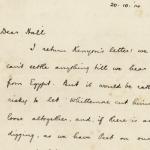 20.10.
Dear Hall
I return Kenyon's letter: we
can't settle anything till we hear
from Egypt. But it would be rather
risky to let Whittemore cut him
loose altogether, and, if there is no
digging, as we have put on our